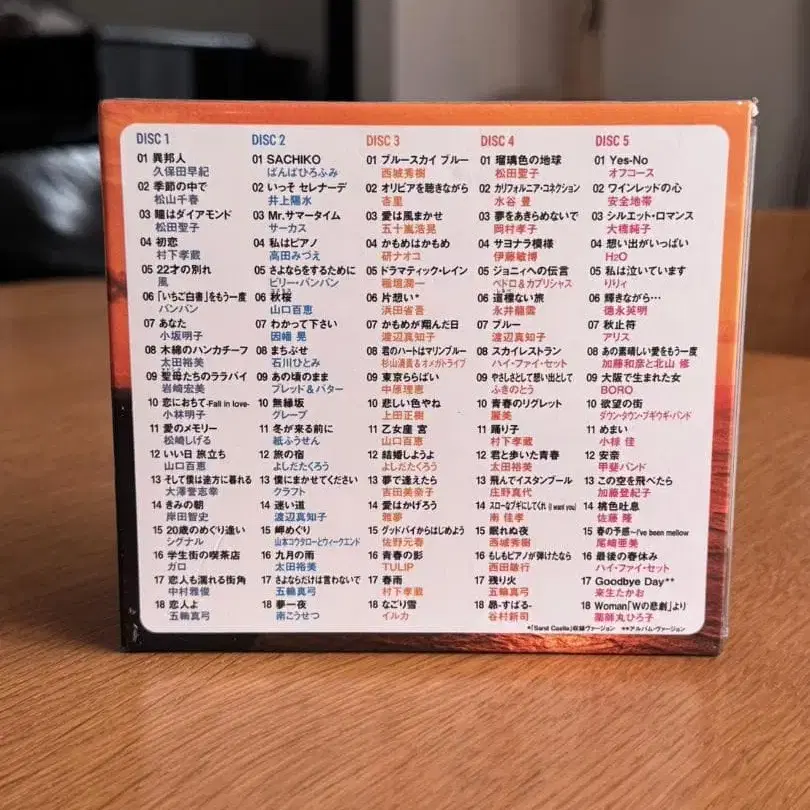 DISC 1
01 異邦人
久保田早紀
02 季節の中で
松山千春
03 瞳はダイアモンド
松田聖子
04 初恋
村下孝蔵
05 22才の別れ
風
06 「いちご白書」をもう一度
バンバン
07 あなた
小坂明子
08 木綿のハンカチーフ
太田裕美
09 聖母たちのララバイ
岩崎宏美
10 恋におちて-Fall in love-
小林明子
11 愛のメモリー
松崎しげる
12 いい日 旅立ち
山口百恵
13 そして僕は途方に暮れる
大澤誉志幸
14 きみの朝
岸田智史
15 20歳のめぐり逢い
シグナル
16 学生街の喫茶店
ガロ
17 恋人も濡れる街角
中村雅俊
18 恋人よ
五輪真弓
DISC 2
01 SACHIKO
ばんばひろふみ
02 いっそ セレナーデ
井上陽水
03 Mr.サマータイム
サーカス
04 私はピアノ
高田みづえ
05 さよならをするために
ビリー・バンバン
06 秋桜
山口百恵
07 わかって下さい
因幡 晃
08 まちぶせ
石川ひとみ
09 あの頃のまま
ブレッド&バター
10 無縁坂
グレープ
11 冬が来る前に
紙ふうせん
12 旅の宿
よしだたくろう
13 僕にまかせてください
クラフト
14 迷い道
渡辺真知子
15 岬めぐり
山本コウタローとウィークエンド
16 九月の雨
太田裕美
17 さよならだけは言わないで
五輪真弓
18 夢一夜
南こうせつ
DISC 3
01 ブルースカイ ブルー
西城秀樹
02 オリビアを聴きながら
杏里
03 愛は風まかせ
五十嵐浩晃
04 かもめはかもめ
研ナオコ
05 ドラマティック・レイン
稲垣潤一
06 片想い*
浜田省吾
07 かもめが翔んだ日
渡辺真知子
08 君のハートはマリンブルー
杉山清貴&オメガトライブ
09 東京ららばい
中原理恵
10 悲しい色やね
上田正樹
11 乙女座 宮
山口百恵
12 結婚しようよ
よしだたくろう
13 夢で逢えたら
吉田美奈子
14 愛はかげろう
雅夢
15 グッドバイからはじめよう
佐野元春
16 青春の影
TULIP
17 春雨
村下孝蔵
18 なごり雪
イルカ
DISC 4
01 瑠璃色の地球
松田聖子
02 カリフォルニア・コネクション
水谷 豊
03 夢をあきらめないで
岡村孝子
04 サヨナラ模様
伊藤敏博
05 ジョニィへの伝言
ペドロ&カプリシャス
06 道標ない旅
永井龍雲
07 ブルー
渡辺真知子
08 スカイレストラン
ハイ・ファイ・セット
09 やさしさとして想い出として
ふきのとう
10 青春のリグレット
麗美
11 踊り子
村下孝蔵
12 君と歩いた青春
太田裕美
13 飛んでイスタンブール
庄野真代
14 スローなブギにしてくれ (I want you)
南 佳孝
15 眠れぬ夜
西城秀樹
16 もしもピアノが弾けたなら
西田敏行
17 残り火
五輪真弓
18 昴-すばる-
谷村新司
DISC 5
01 Yes-No
オフコース
02 ワインレッドの心
安全地帯
03 シルエット・ロマンス
大橋純子
04 想い出がいっぱい
H2O
05 私は泣いています
りりィ
06 輝きながら…
徳永英明
07 秋止符
アリス
08 あの素晴しい愛をもう一度
加藤和彦と北山 修
09 大阪で生まれた女
BORO
10 欲望の街
ダウン・タウン・ブギウギ・バンド
11 めまい
小椋 佳
12 安奈
甲斐バンド
13 この空を飛べたら
加藤登紀子
14 桃色吐息
佐藤 隆
15 春の予感~I've been mellow
尾崎亜美
16 最後の春休み
ハイ・ファイ・セット
17 Goodbye Day**
来生たかお
18 Woman「Wの悲劇」より
薬師丸ひろ子
*「Sand Castle」収録ヴァージョン **アルバム・ヴァージョン